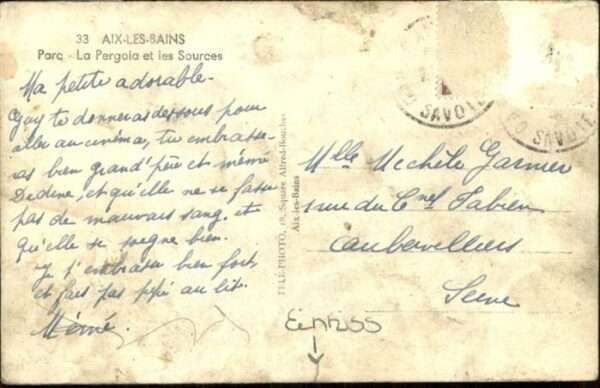 33 AIX-LES-BAINS
Parc - La Pergola et les Sources
Ma petite adorable.
Guy te donnera des sous pour
aller au cinéma, tu embrasse-
ras bien grand'père et mémé
Dedine, et qu'elle ne se fasse
pas de mauvais sang. et
qu'elle se soigne bien.
Je t'embrasse bien fort
et fais pas pipi au lit.
Mémé.
TÉLÉ-PHOTO, 18, Square Alfred-Boucher
Aix-les-Bains
Mlle Michèle Garnier
rue du Cnel Fabien
Aubervilliers
Seine
SAVOIE
SAVOIE